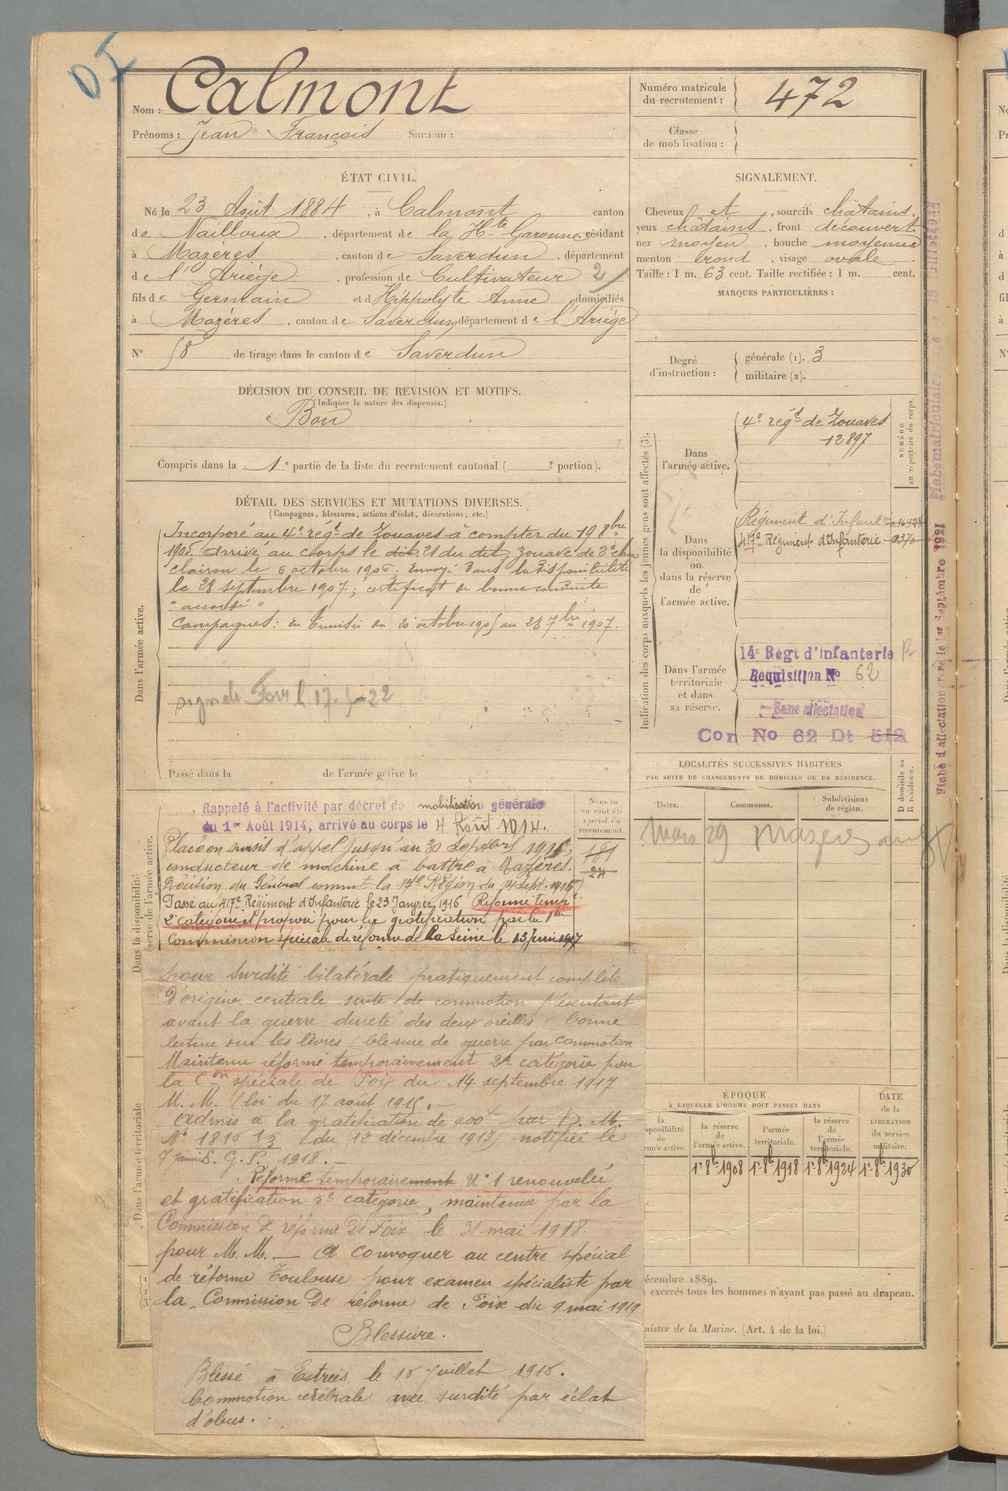 Nom : Calmont
Prénoms : Jean François Surnom :
Numéro matricule du recrutement : 472
Classe de mobilisation :
ÉTAT CIVIL.
Né le 23 Août 1884, à Calmont canton
de Nailloux, département de la Hte Garonne, résidant
à Mazères, canton de Saverdun, département
de l'Ariège, profession de Cultivateur
fils de Germain et d Hippolyte Anne domiciliés
à Mazères, canton de Saverdun, département de l'Ariège
No 58 de tirage dans le canton de Saverdun
DÉCISION DU CONSEIL DE REVISION ET MOTIFS.
(Indiquer la nature des dispenses.)
Bon
Compris dans la 1e partie de la liste du recrutement cantonal ( e portion).
DÉTAIL DES SERVICES ET MUTATIONS DIVERSES.
(Campagnes, blessures, actions d'éclat, décorations, etc.)
Dans l'armée active.
Incorporé au 4e régt de Zouaves à compter du 19 8bre
1905. Arrivé au corps le dit 21 du dit, Zouave de 2e cl
clairon le 6 octobre 1906. Envoyé dans la disponibilité
le 28 septembre 1907; certificat de bonne conduite
"accordé"
Campagnes: En Tunisie du 20 octobre 1905 au 28 7bre 1907.
Passé dans la de l'armée active le
Rappelé à l'activité par décret de mobilisation générale
du 1er Août 1914, arrivé au corps le 4 Août 1914.
Placé en sursis d'appel jusqu'au 30 septembre 1915,
conducteur de machine à battre à Mazères.
Décision du Général commt la 17e Région du 14 sept. 1915
Passé au 417e Régiment d'Infanterie le 23 Janvier 1916 Réformé temp
2e catégorie et proposé pour une gratification par la 1re
Commission spéciale de réforme de la Seine le 23 Juin 1917
pour surdité bilatérale pratiquement complète
d'origine centrale suite de commotion présentant
avant la guerre dureté des deux oreilles (bonne
lecture sur les lèvres) blessure de guerre par commotion
Maintenu réformé temporairement 2e catégorie par
la Con spéciale de Foix du 14 septembre 1917
M. M. (loi du 17 août 1915.-
Admis à la gratification de 900f par D. M.
No 1810 13 du 12 décembre 1917 notifiée le
S. G. P. 1918.-
Réformé temporairement No 1 renouvelé
et gratification 3e catégorie, maintenue par la
Commission de réforme de Foix le 31 mai 1918
pour M. M. — A convoquer au centre spécial
de réforme Toulouse pour examen spécialiste par
la Commission de réforme de Foix du 9 mai 1919
Blessure.
Blessé à Estrées le 16 juillet 1916.
Commotion cérébrale avec surdité par éclat
d'obus.
SIGNALEMENT.
Cheveux et, sourcils châtains.
yeux châtains, front découvert.
nez moyen, bouche moyenne
menton rond, visage ovale
Taille : 1 m. 63 cent. Taille rectifiée : 1 m. cent.
MARQUES PARTICULIÈRES :
Degré d'instruction : générale (1). 3
militaire (2).
Indication des corps auxquels les jeunes gens sont affectés (3).
NUMÉRO au répertoire du corps.
Dans l'armée active.
4e régt de Zouaves
12897
Dans la disponibilité ou dans la réserve de l'armée active.
Régiment d'Infant
417e Régiment d'Infanterie
Dans l'armée territoriale et dans sa réserve.
14e Régt d'infanterie
Réquisition No 62
Sans affectation
Cor No 62 Dt 512
LOCALITÉS SUCCESSIVES HABITÉES
PAR SUITE DE CHANGEMENTS DE DOMICILE OU DE RÉSIDENCE.
Dates. Communes. Subdivisions de région.
Mars 29 Mazères
ÉPOQUE
À LAQUELLE L'HOMME DOIT PASSER DANS
la réserve de l'armée active. l'armée territoriale. la réserve de l'armée territoriale.
DATE de la LIBÉRATION du service militaire.
1r 8b 1908 1r 8b 1918 1r 8b 1924 1r 8b 1930
écembre 1889.
exercés tous les hommes n'ayant pas passé au drapeau.
nistre de la Marine. (Art. 4 de la loi.)